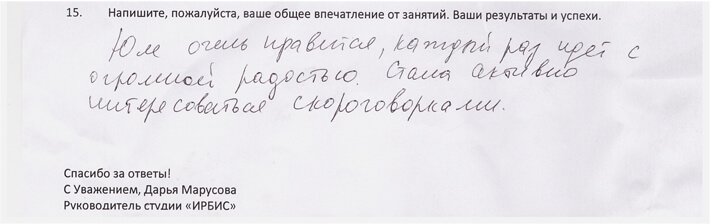 15. Напишите, пожалуйста, ваше общее впечатление от занятий. Ваши результаты и успехи.
Юле очень нравится, каждый раз идет с
огромной радостью. Стала активно
интересоваться скороговорками.
Спасибо за ответы!
С Уважением, Дарья Марусова
Руководитель студии «ИРБИС»